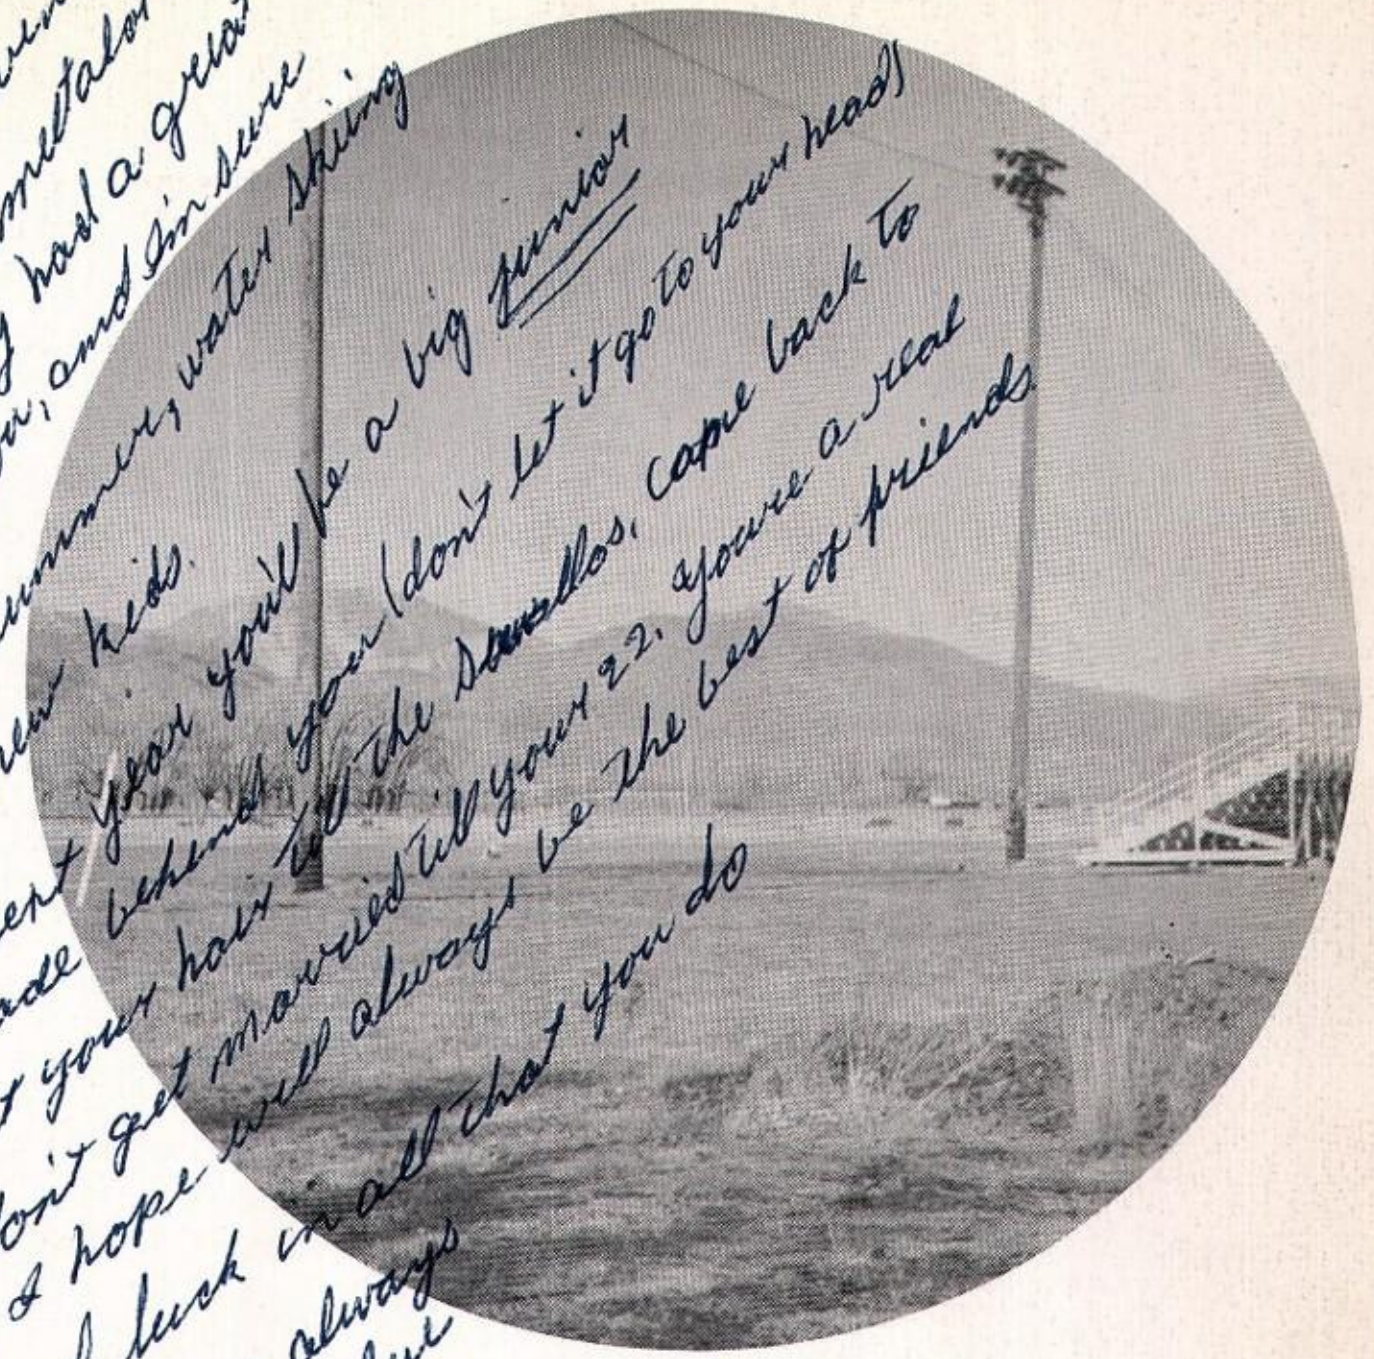 had a great
, and I'm sure
ummer, water skiing
new kids.
year you'll be a big junior
behind you (don't let it go to your head)
t your hair till the swallos, come back to
on't get married till your 22. Youre a real
I hope will always be the best of friends
luck in all that you do
always